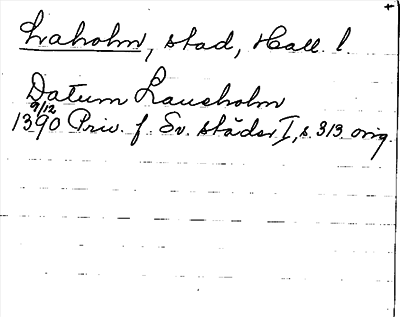 Laholm, stad, Hall. l.
Datum Laueholm
9/12
1390 Priv. f. Sv. städer I, s. 313. orig.